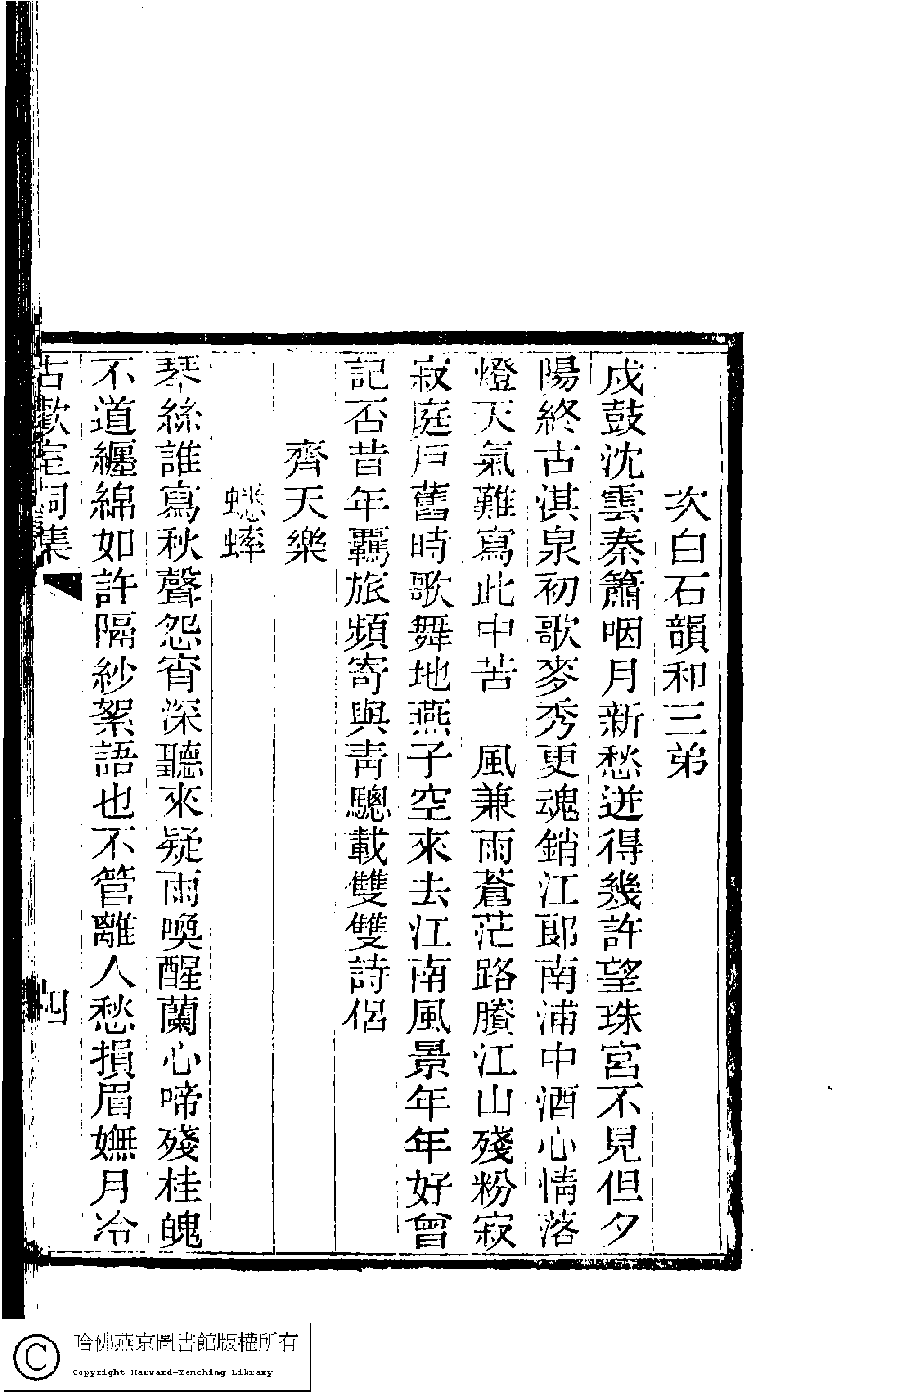 次白石韻和三弟
戍鼓沈雲秦簫咽月新愁迸得幾許望珠宮不見但夕
陽終古淇泉初歌麥秀更魂銷江郎南浦中酒心情落
燈天氣難寫此中苦　風兼雨蒼茫路賸江山殘粉寂
寂庭戶舊時歌舞地燕子空來去江南風景年年好曾
記否昔年羈旅頻寄與青驄載雙雙詩侶
齊天樂
蟋蟀
琴絲誰寫秋聲怨宵深聽來疑雨喚醒蘭心啼殘桂魄
不道纏綿如許隔紗絮語也不管離人愁損眉嫵月冷
古歡室詞集
四
哈佛燕京圖書館版權所有
Copyright Harvard-Yenching Library